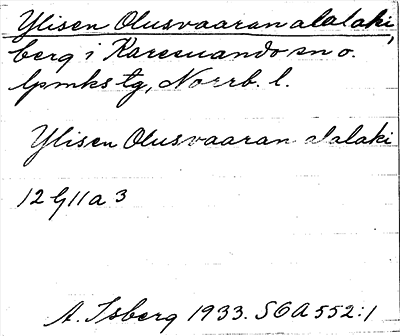 Ylisen Olusvaaran alalaki,
berg i Karesuando sn o.
lpmks tg, Norrb. l.
Ylisen Olusvaaran alalaki
12 G 11 a 3
A. Isberg 1933. SOA 552:1